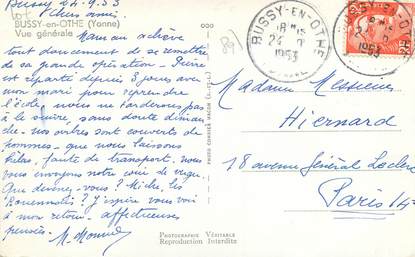 Bussy 24-9-53
Chers amis,
BUSSY-en-OTHE (Yonne)
Vue générale
Maman achève
tout doucement de se remettre
de sa grande opération - Pierre
est reparti depuis 8 jours avec
mon mari pour reprendre
l'école, nous ne tarderons pas
à le suivre, sans doute diman
che. nos arbres sont couverts de
pommes, que nous laissons
hélas, faute de transport. nous
vous envoyons notre coin de
Que devenez-vous ? Miche, les
? J'espère vous voir
à mon retour. affectueuses
pensées.
BUSSY-EN-OTHE
18H15
1953
YONNE
BUSSY-EN-OTHE
1953
Madame Messieurs
Hiernard
18 avenue Général Leclerc
Paris 14e
PHOTOGRAPHIE VÉRITABLE
Reproduction Interdite